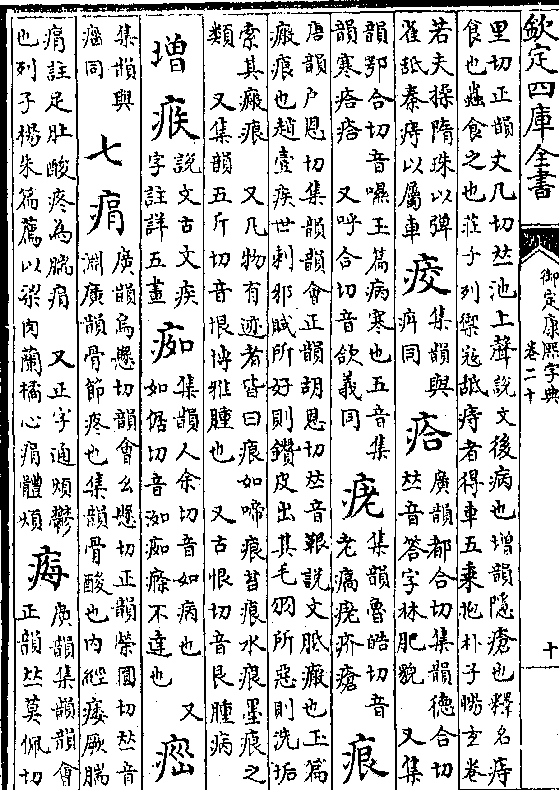 欽定四庫全書
御定康熙字典
卷二十
十
里切正韻丈几切𠀤池上聲說文後病也增韻隱瘡也釋名痔
食也蟲食之也莊子列禦寇舐痔者得車五乗抱朴子暢𤣥卷
若夫操隋珠以彈
雀舐秦痔以屬車
集韻與
同
㾑
廣韻都合切集韻德合切
𠀤音答字林肥貌 又集
韻鄂合切音㬤玉篇病寒也五音集
韻寒㾑㾑 又呼合切音欱義同
集韻魯皓切音
老瘑 疥瘡
痕
唐韻戶恩切集韻韻會正韻胡恩切𠀤音鞎說文胝瘢也玉篇
瘢痕也趙壹疾世刺邪賦所好則鑽皮出其毛羽所惡則洗垢
索其瘢痕 又凡物有迹者皆曰痕如啼痕苔痕水痕墨痕之
類 又集韻五斤切音垠博雅腫也 又古恨切音艮腫病
增
說文古文疾
字註詳五畫
㾒
集韻人余切音如病也 又
如倨切音洳㾒 不達也
集韻與
同
七
㾓
廣韻烏懸切韻會幺懸切正韻縈圓切𠀤音
淵廣韻骨節疼也集韻骨酸也内經痿厥腨
㾓註足肚酸疼為腨㾓 又正字通煩鬱
也列子楊朱篇薦以粱肉蘭橘心㾓體煩
痗
廣韻集韻韻會
正韻𠀤莫佩切